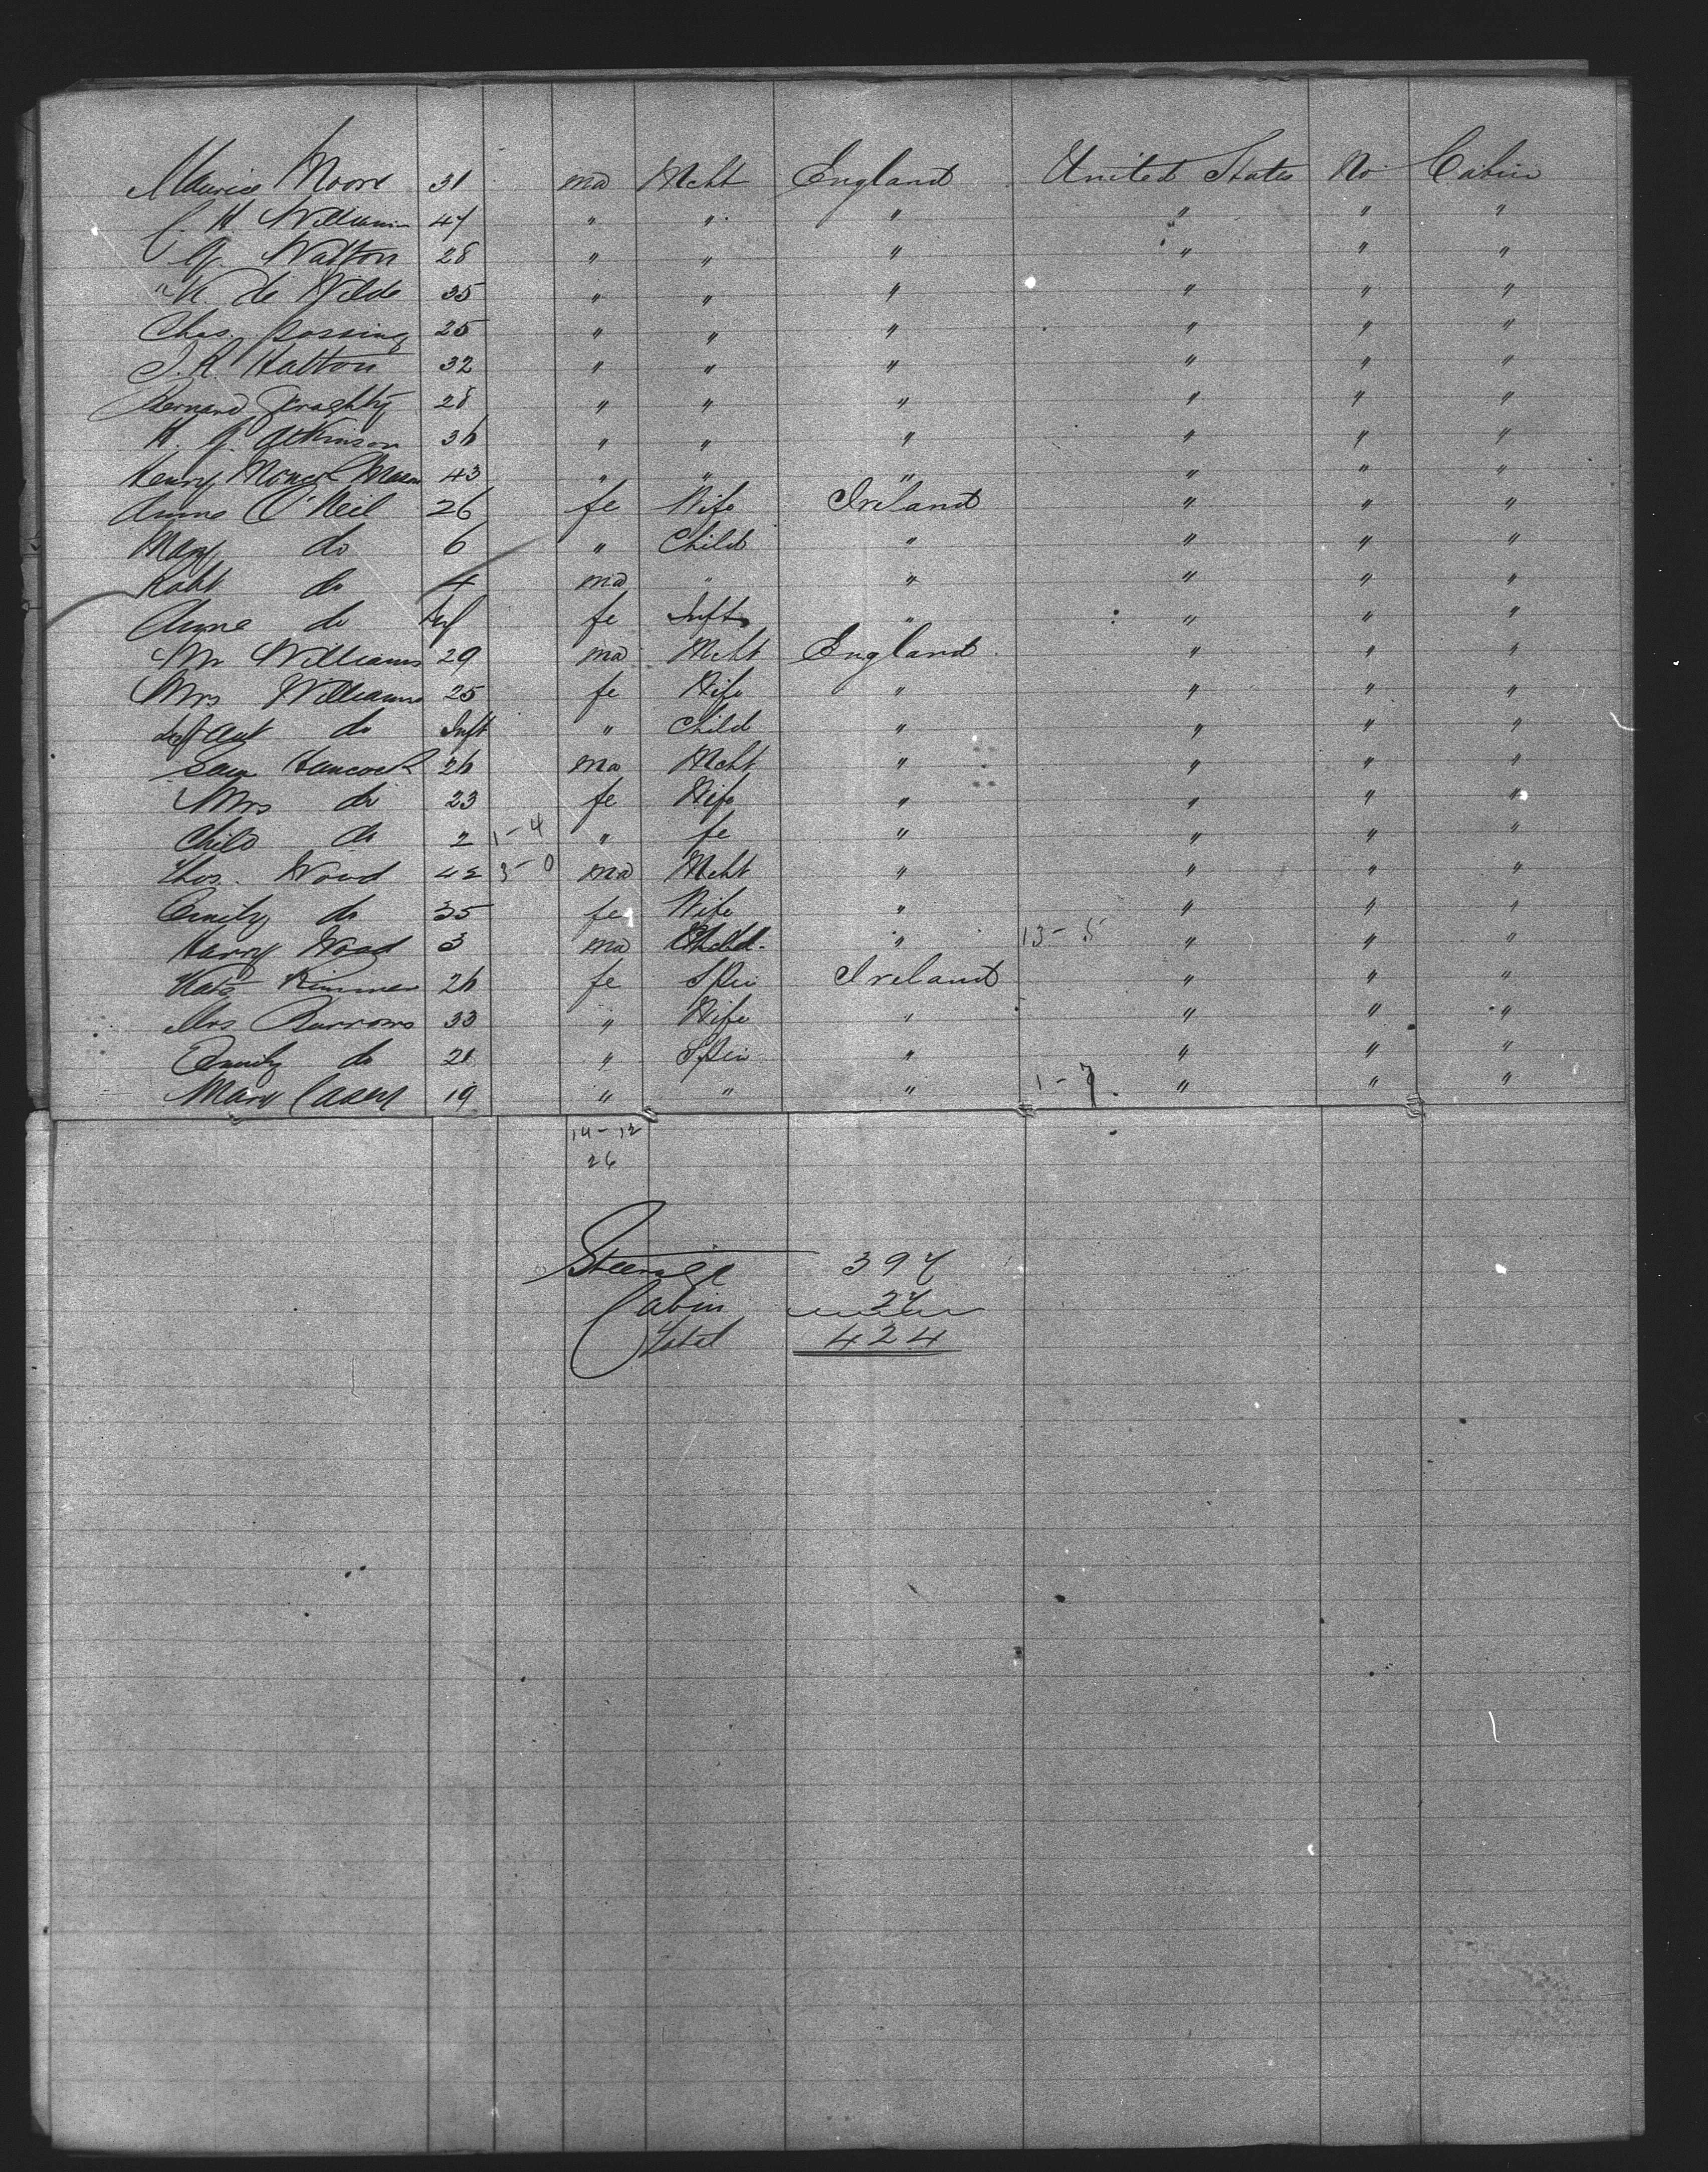 Maurice Moore 31 ma Mcht England United States No Cabin
C. H. William 47 " " " " " "
G. Walton 28 " " " " " "
K. de Wilde 35 " " " " " "
Chas. 25 " " " " " "
J. R. Hatton 32 " " " " " "
Bernard Geraghty 28 " " " " " "
H. J. Atkinson 36 " " " " " "
Henry Monck Mason 43 " " " " " "
Anne O'Neil 26 fe Wife Ireland " " "
Mary do 6 " Child " " " "
Robt do 4 ma " " " " "
Anne do Inf fe Inft " " " "
Mr Williams 29 ma Mcht England " " "
Mrs Williams 25 fe Wife " " " "
Infant do Inft " Child " " " "
Sam Hancock 26 ma Mcht " " " "
Mrs do 23 fe Wife " " " "
Child do 2 1-4 " fe " " " "
Thos. Wood 42 3-0 ma Mcht " " " "
Emily do 35 fe Wife " " " "
Harry Wood 3 ma Child " 13-5 " " "
Kate Rimmer 26 fe Spin Ireland " " "
Mrs Burrows 33 " Wife " " " "
Emily do 21 " Spin " " " "
Mary Casey 19 " " " 1-7. " " "
14-12
26
Steerage 397
Cabin 27
Total 424